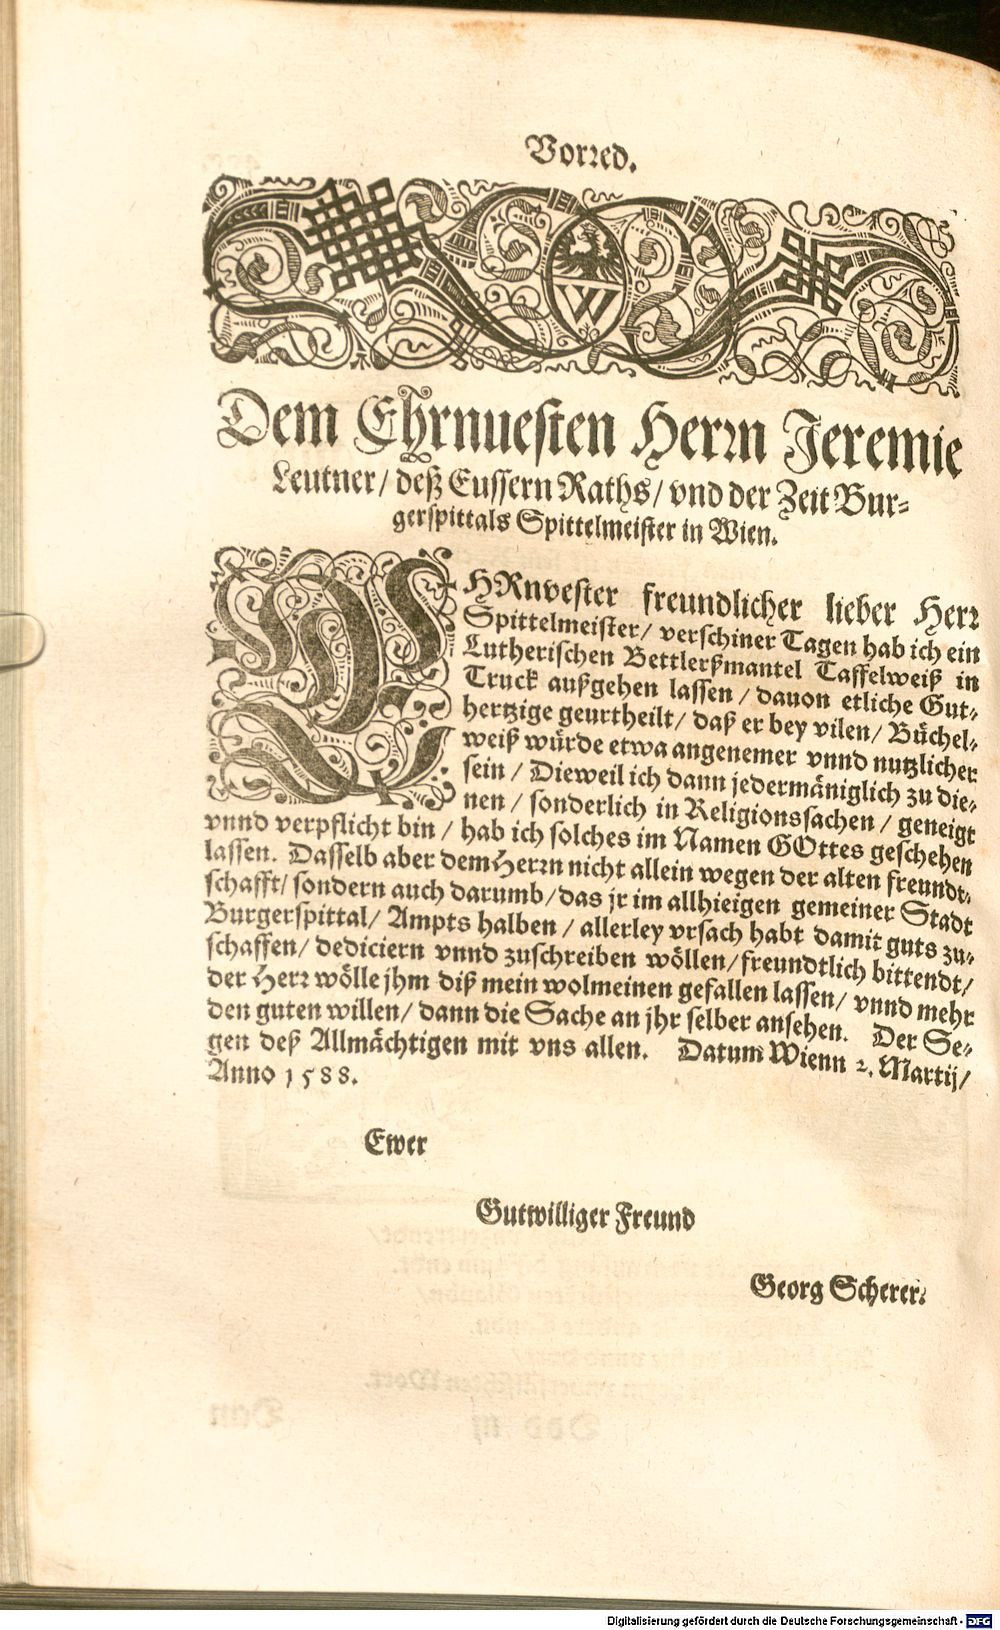 Vorred.
Dem Ehrnuesten Herrn Jeremie
Leutner/ deß Eussern Raths/ vnd der Zeit Bur-
gerspittals Spittelmeister in Wien.
EHRnvester freundlicher lieber Herr
Spittelmeister/ verschiner Tagen hab ich ein
Lutherischen Bettlerßmantel Taffelweiß in
Truck außgehen lassen/ dauon etliche Gut-
hertzige geurtheilt/ daß er bey vilen/ Büchel-
weiß würde etwa angenemer vnnd nutzlicher
sein/ Dieweil ich dann jedermäniglich zu die-
nen/ sonderlich in Religionssachen/ geneigt
vnnd verpflicht bin/ hab ich solches im Namen GOttes geschehen
lassen. Dasselb aber dem Herrn nicht allein wegen der alten freundt-
schafft/ sondern auch darumb/ das jr im allhieigen gemeiner Stadt
Burgerspittal/ Ampts halben/ allerley vrsach habt damit guts zu-
schaffen/ dediciern vnnd zuschreiben wöllen/ freundtlich bittendt/
der Herr wölle jhm diß mein wolmeinen gefallen lassen/ vnnd mehr
den guten willen/ dann die Sache an jhr selber ansehen. Der Se-
gen deß Allmächtigen mit vns allen. Datum Wienn 2. Martij/
Anno 1588.
Ewer
Gutwilliger Freund
Georg Scherer.
Digitalisierung gefördert durch die Deutsche Forschungsgemeinschaft - DFG